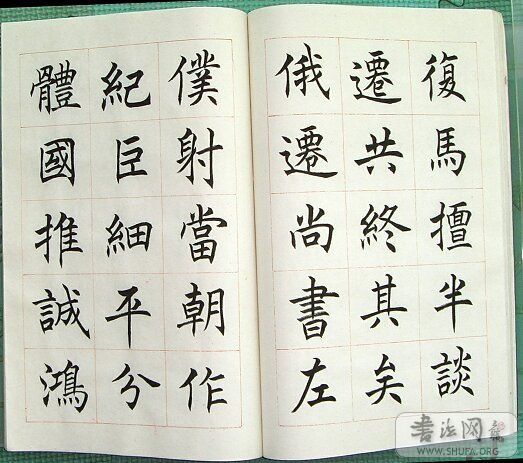 復馬擅半談
遷共終其矣
俄遷尚書左
僕射當朝作
紀巨細平分
體國推誠鴻
书法网
WWW.SHUFA.ORG